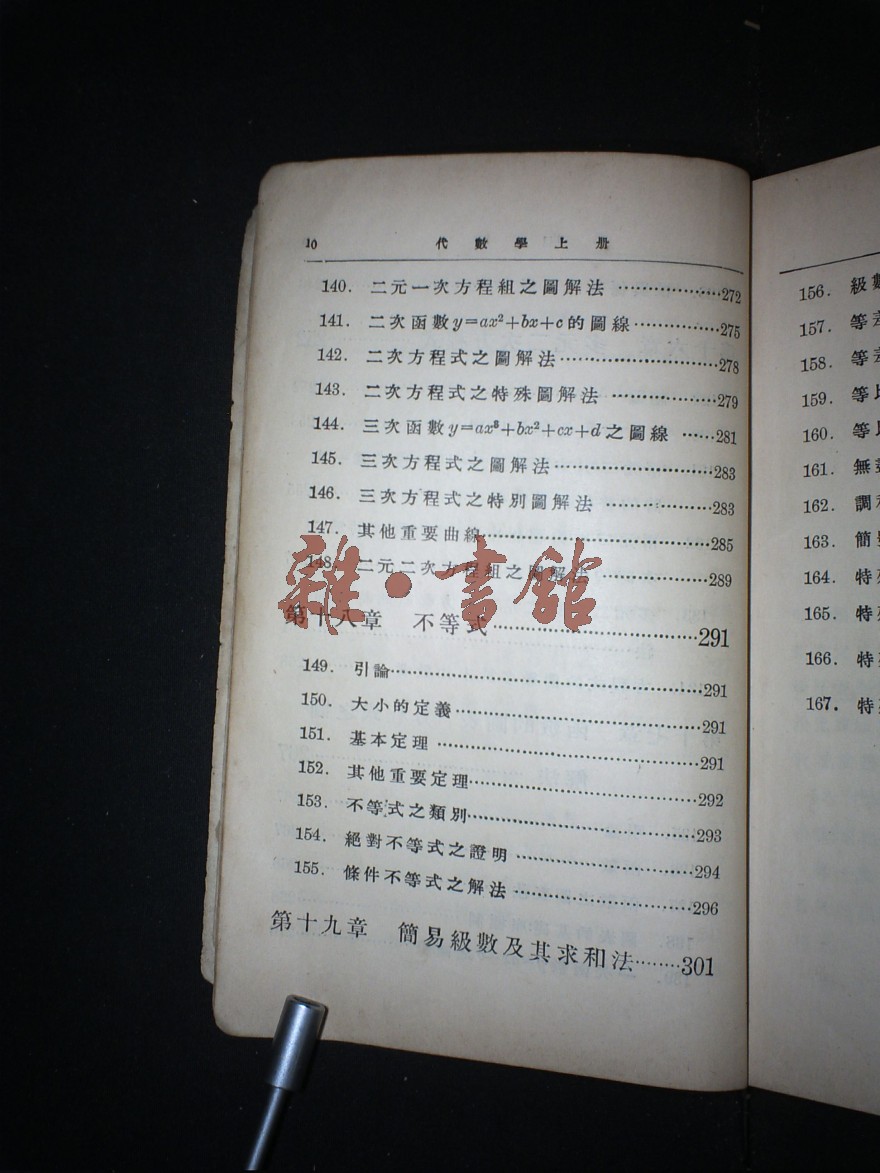 10 代數學上册
140. 二元一次方程組之圖解法 ………………272
141. 二次函數y=ax²+bx+c的圖線……………275
142. 二次方程式之圖解法…………………………278
143. 二次方程式之特殊圖解法 ………………279
144. 三次函數y=ax³+bx²+cx+d之圖線 ……281
145. 三次方程式之圖解法…………………………283
146. 三次方程式之特別圖解法 ………………283
147. 其他重要曲線…………………………………285
148. 二元二次方程組之圖解法 ………………289
雜·書館
第十八章 不等式……………………………291
149. 引論……………………………………………291
150. 大小的定義……………………………………291
151. 基本定理 ……………………………………291
152. 其他重要定理…………………………………292
153. 不等式之類別…………………………………293
154. 絕對不等式之證明 …………………………294
155. 條件不等式之解法 …………………………296
第十九章 簡易級數及其求和法………301
156. 級數
157. 等差
158. 等差
159. 等比
160. 等比
161. 無
162. 調和
163. 簡
164. 特殊
165. 特殊
166. 特殊
167. 特殊